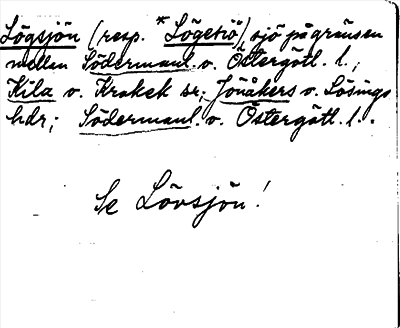 Lögsjön (resp. *Lögesiö), sjö på gränsen
mellan Södermanl. o. Östergötl. l.;
Kila o. Krokek sr; Jönåkers o. Lösings
hdr; Södermanl. o. Östergötl. l.
Se Lövsjön!